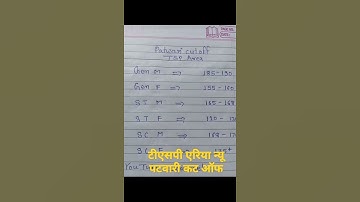 Patwari cutoff
TSP Area
Gen M ⇒ 185-190
Gen F ⇒ 155-160
ST M ⇒ 165-168
ST F ⇒ 120-13
SC M ⇒
SC F
टीएसपी एरिया न्यू
पटवारी कट ऑफ
You